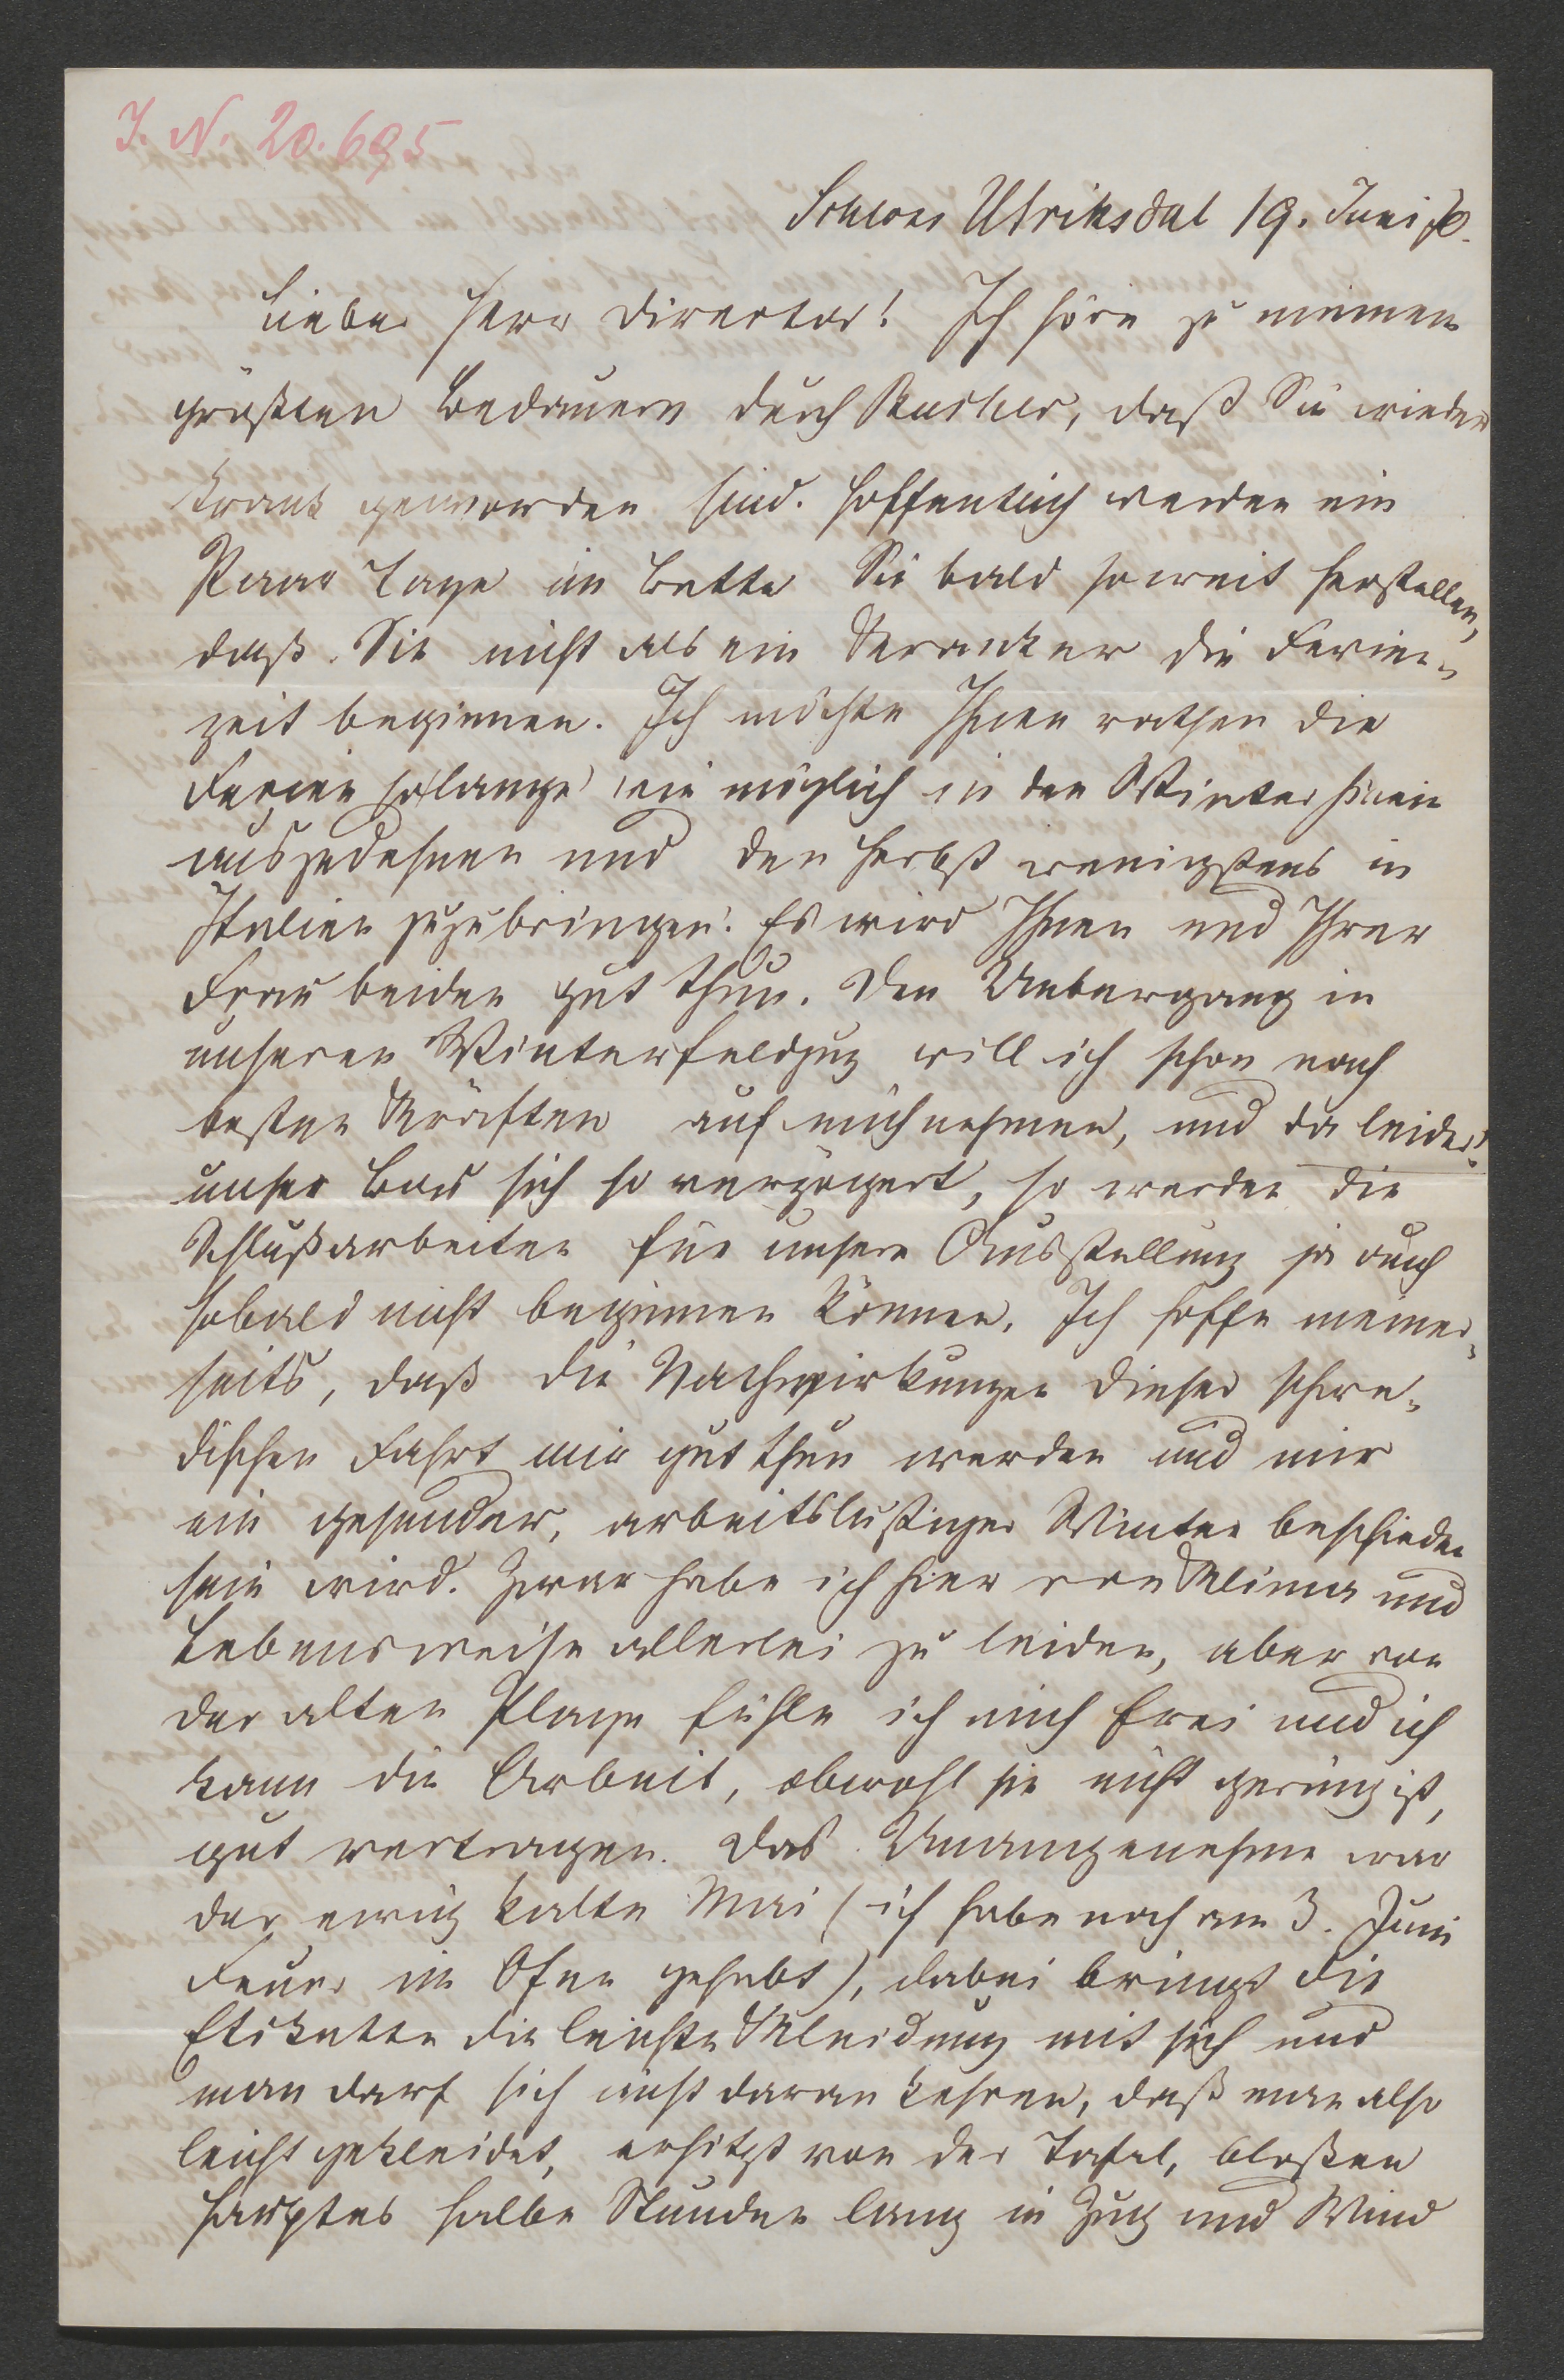 I. N. 20.695
Schloss Ulriksdal 19. Juni 70.
Lieber Herr Director! Ich höre zu meinem
größten Bedauern durch Bucher, daß Sie wieder
krank geworden sind. Hoffentlich werden ein
Paar Tage im Bette Sie bald soweit herstellen,
daß Sie nicht als ein Kranker die Ferien-
zeit beginnen. Ich möchte Ihnen rathen die
Ferien solange wie möglich in den Winter hinein
auszudehnen und den Herbst wenigstens in
Italien zuzubringen. Es wird Ihnen und Ihrer
Frau beiden gut thun. Den Uebergang in
unseren Winterfeldzug will ich schon nach
besten Kräften auf mich nehmen, und da leider
unser Bau sich so verzögert, so werden die
Schlußarbeiten für unsere Ausstellung ja auch
sobald nicht beginnen können. Ich hoffe meiner-
seits, daß die Nachwirkungen dieser schwe-
dischen Fahrt mir gut thun werden und mir
ein gesunder, arbeitslustiger Winter beschieden
sein wird. Zwar habe ich hier von Klima und
Lebensweise allerlei zu leiden, aber von
der alten Plage fühle ich mich frei und ich
kann die Arbeit, obwohl sie nicht gering ist,
gut vertragen. Das Unangenehme war
der ewig kalte Mai (ich habe noch am 3. Juni
Feuer im Ofen gehabt), dabei bringt die
Etikette die leichte Kleidung mit sich und
man darf sich nicht daran kehren, daß man also
leicht gekleidet, erhitzt von der Tafel, bloßen
Hauptes halbe Stunden lang in Zug und Wind